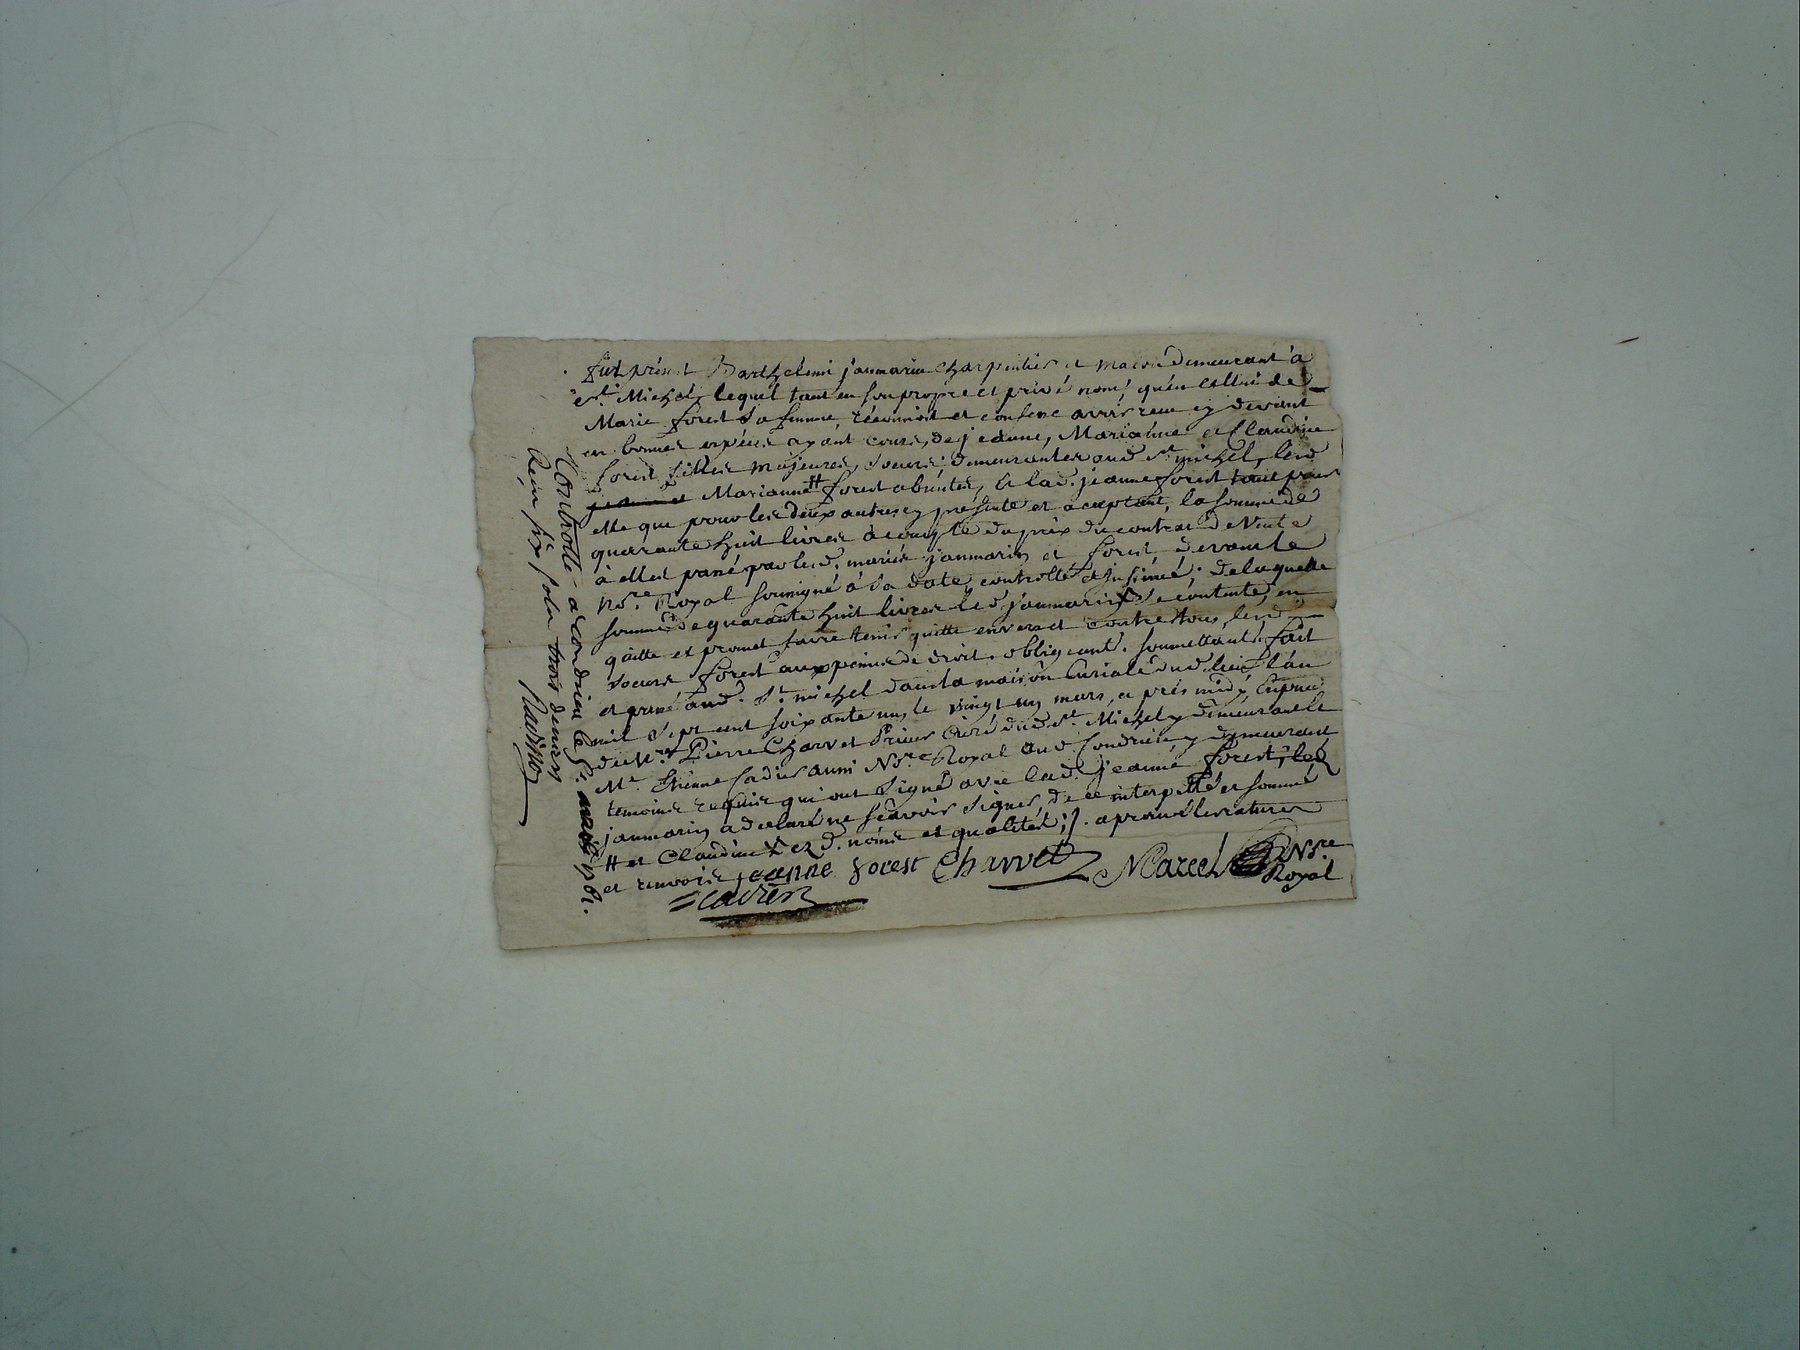 fut présent Barthélemi janmarin charpentier et masson demeurant à
St. Michel, lequel tant en son propre et privé nom, qu'en cellui de
Marie forest sa femme, réconnoit et confesse avoir receu cy devant
en bonnes espéces ayant cours, de jeanne, Marianne et Claudine
forest filles majeures, soeurs demeurantes aud. St. michel, lesd.
jeanne et Marianne # forest absentes, et lad. jeanne forest tant pour
elle que pour les deux autres cy présente et aceptant, la somme de
quarante huit livres à compte du prix du contrat de Vente
à elles passé par lesd. mariés janmarin et forest, devant le
Nore. Royal soussigné à sa date, controllé et insinué; de laquelle
somme de quarante huit livres led. janmarin se contente, en
quitte et promet faire tenir quitte envers et contre tous, lesd.
soeurs forest aux peines de droit. obligeant. soumettant. fait
et passé aud. St. michel dans la maison Curiale dud. lieu l'an
mil sept cent soixante un, le vingt un mars, après midy, En présence
de Mre. Pierre Charvet Prieur Curé dud. St. Michel y demeurant et
Me. Etienne Cadier aussi Nore. Royal aud. Condrieu y demeurant
temoins requis qui ont signé avec lad. jeanne forest, led.
janmarin a declaré ne sçavoir signer, de ce interpellé et sommé
# et Claudine X ezd. noms et qualités; aprouvé les ratures
et renvois jeanne forest Charvet Marcel Nore.
Royal
Cadier
Controllé a condrieu le 1761.
Reçu six sols trois deniers